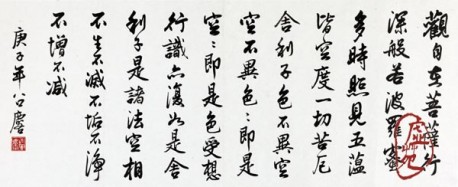 觀自在菩薩行
深般若波羅蜜
多時照見五蘊
皆空度一切苦厄
舍利子色不異空
空不異色〻即是
空〻即是色受想
行識亦復如是舍
利子是諸法空相
不生不滅不垢不淨
不增不減
庚子年公